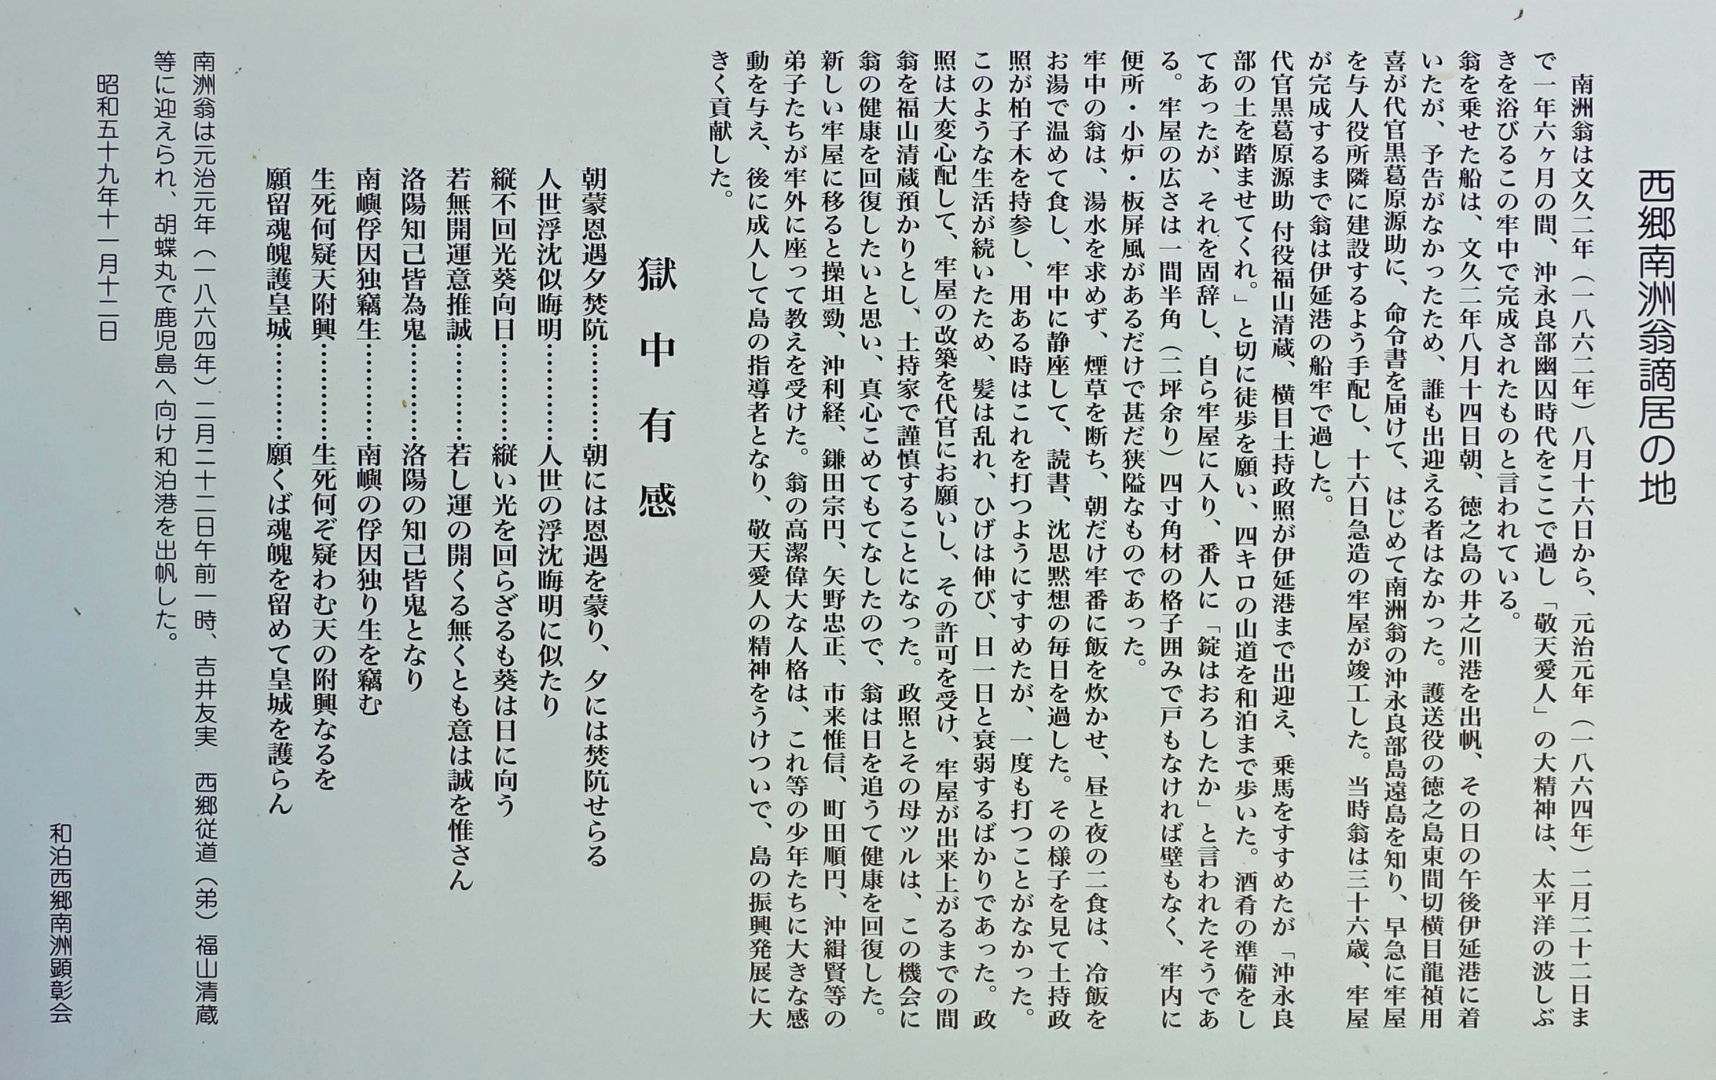 西郷南洲翁謫居の地
南洲翁は文久二年（一八六二年）八月十六日から、元治元年（一八六四年）二月二十二日ま
で一年六ヶ月の間、沖永良部幽囚時代をここで過し「敬天愛人」の大精神は、太平洋の波しぶ
きを浴びるこの牢中で完成されたものと言われている。
翁を乗せた船は、文久二年八月十四日朝、徳之島の井之川港を出帆、その日の午後伊延港に着
いたが、予告がなかったため、誰も出迎える者はなかった。護送役の徳之島東間切横目龍禎用
喜が代官黒葛原源助に、命令書を届けて、はじめて南洲翁の沖永良部島遠島を知り、早急に牢屋
を与人役所隣に建設するよう手配し、十六日急造の牢屋が竣工した。当時翁は三十六歳、牢屋
が完成するまで翁は伊延港の船牢で過した。
代官黒葛原源助 付役福山清蔵、横目土持政照が伊延港まで出迎え、乗馬をすすめたが「沖永良
部の土を踏ませてくれ。」と切に徒歩を願い、四キロの山道を和泊まで歩いた。酒肴の準備をし
てあったが、それを固辞し、自ら牢屋に入り、番人に「錠はおろしたか」と言われたそうであ
る。牢屋の広さは一間半角（二坪余り）四寸角材の格子囲みで戸もなければ壁もなく、牢内に
便所・小炉・板屏風があるだけで甚だ狭隘なものであった。
牢中の翁は、湯水を求めず、煙草を断ち、朝だけ牢番に飯を炊かせ、昼と夜の二食は、冷飯を
お湯で温めて食し、牢中に静座して、読書、沈思黙想の毎日を過した。その様子を見て土持政
照が柏子木を持参し、用ある時はこれを打つようにすすめたが、一度も打つことがなかった。
このような生活が続いたため、髪は乱れ、ひげは伸び、日一日と衰弱するばかりであった。政
照は大変心配して、牢屋の改築を代官にお願いし、その許可を受け、牢屋が出来上がるまでの間
翁を福山清蔵預かりとし、土持家で謹慎することになった。政照とその母ツルは、この機会に
翁の健康を回復したいと思い、真心こめてもてなしたので、翁は日を追うて健康を回復した。
新しい牢屋に移ると操坦勁、沖利経、鎌田宗円、矢野忠正、市来惟信、町田順円、沖緝賢等の
弟子たちが牢外に座って教えを受けた。翁の高潔偉大な人格は、これ等の少年たちに大きな感
動を与え、後に成人して島の指導者となり、敬天愛人の精神をうけついで、島の振興発展に大
きく貢献した。
獄中有感
朝蒙恩遇夕焚阬…………朝には恩遇を蒙り、夕には焚阬せらる
人世浮沈似晦明…………人世の浮沈晦明に似たり
縦不回光葵向日…………縦い光を回らざるも葵は日に向う
若無開運意推誠…………若し運の開くる無くとも意は誠を惟さん
洛陽知己皆為鬼…………洛陽の知己皆鬼となり
南嶼俘因独竊生…………南嶼の俘因独り生を竊む
生死何疑天附興…………生死何ぞ疑わむ天の附興なるを
願留魂魄護皇城…………願くば魂魄を留めて皇城を護らん
南洲翁は元治元年（一八六四年）二月二十二日午前一時、吉井友実　西郷従道（弟）福山清蔵
等に迎えられ、胡蝶丸で鹿児島へ向け和泊港を出帆した。
昭和五十九年十一月十二日
和泊西郷南洲顕彰会